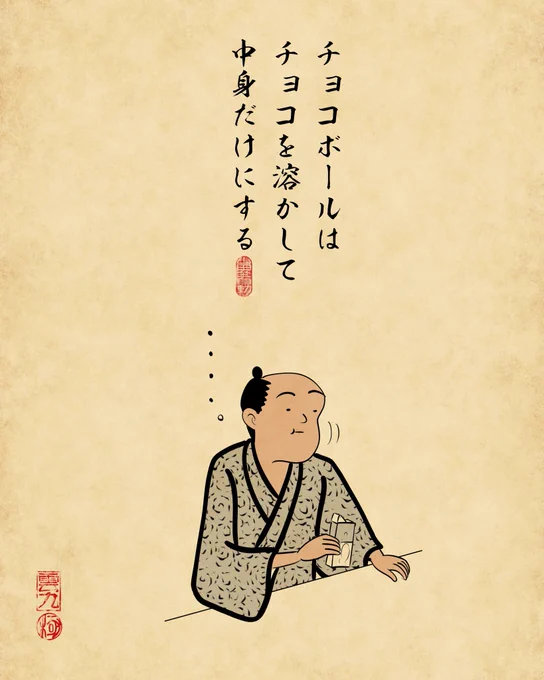 チョコボールは
チョコを溶かして
中身だけにする